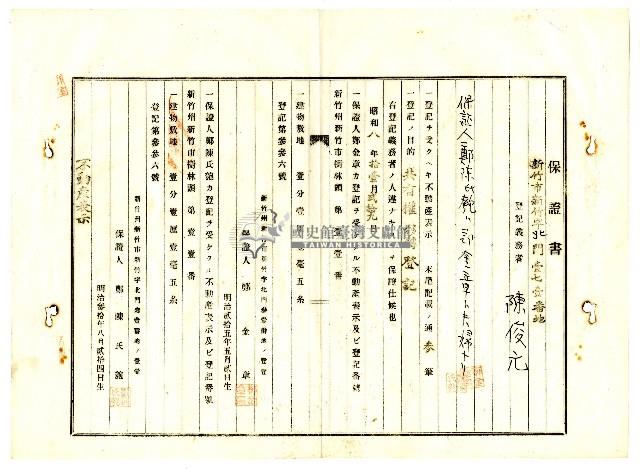 保證書
新竹市新竹字北門壹七壹番地
登記義務者 陳俊元
保証人鄭陳氏
一登記ヲ受クヘキ不動産表示 末尾記載ノ通 参筆
一登記ノ目的 共有權 登記
右登記義務者ノ人違ナキコトヲ保證仕候也
昭和八年拾壹月貳拾九日
一保證人鄭金章カ登記ヲ受ケタル不動產表示及ビ登記番號
新竹州新竹市樹林頭 第壹壹番
一建物敷地 壹分壹厘壹毫五糸
登記第參參六號
保證人 鄭金章
明治貳拾五年五月貳日生
一保證人鄭陳氏 カ登記ヲ受ケタル不動産表示及ビ登記番號
新竹州新竹市樹林頭 第壹壹番
一建物敷地 壹分壹厘壹毫五糸
登記第參參六號
新竹州新竹市新竹字北門
保證人 鄭陳氏
明治參拾年八月貳拾四日生
不動産表示
國史館臺灣文獻館
TAIWAN HISTORICA